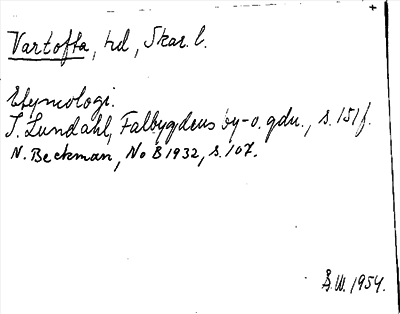 Vartofta, hd, Skar. l.
Etymologi.
I. Lundahl, Falbygdens by-o. gdn., s. 151 f.
N. Beckman, No B 1932, s. 107.
B.W. 1954.